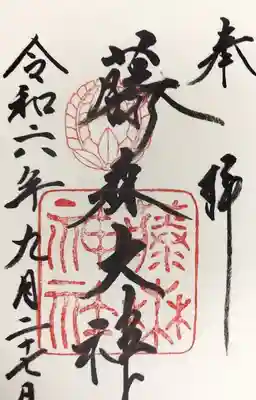 奉拝
藤森大神
藤森神社
令和六年九月二十七日